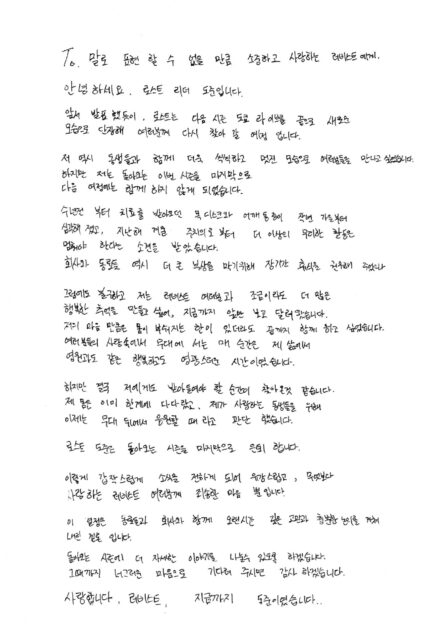 To. 말로 표현 할 수 없을 만큼 소중하고 사랑하는 레비스트 에게.
안녕하세요. 로스트 리더 도준입니다.
앞서 발표 했듯이, 로스트는 다음 시즌 도쿄 라이브를 끝으로 새로운
모습으로 단장해 여러분께 다시 찾아 갈 예정 입니다.
저 역시 동생들과 함께 더욱 씩씩하고 멋진 모습으로 여러분들을 만나고 싶었습니다.
하지만 저는 돌아오는 이번 시즌을 마지막으로
다음 여정에는 함께 하지 않게 되었습니다.
수년전 부터 치료를 받아오던 목 디스크와 어깨 통증이 작년 가을부터
심해 졌고, 지난해 겨울 주치의로 부터 더 이상의 무리한 활동은
멈춰야 한다는 소견을 받았습니다.
회사와 동료들 역시 더 큰 부상을 막기위해 장기간 휴식을 권유해 주었으나
그럼에도 불구하고 저는 레비스트 여러분과 조금이라도 더 많은
행복한 추억을 만들고 싶어, 지금까지 앞만 보고 달려왔습니다.
저의 마음 만큼은 몸이 부서지는 한이 있더라도 끝까지 함께 하고 싶었습니다.
여러분들의 사랑속에서 무대에 서는 매 순간은 제 삶에서
영원과도 같은 행복하고도 영광스러운 시간이였습니다.
하지만 결국 저에게도 받아들여야 할 순간이 찾아온것 같습니다.
제 몸은 이미 한계에 다다랐고, 제가 사랑하는 동생들을 위해
이제는 무대 뒤에서 응원할 때 라고 판단 했습니다.
로스트 도준은 돌아오는 시즌을 마지막으로 은퇴 합니다.
이렇게 갑작스럽게 소식을 전하게 되어 유감스럽고, 무엇보다
사랑하는 레비스트 여러분께 죄송한 마음 뿐 입니다.
이 결정은 동료들과 회사와 함께 오랜시간 깊은 고민과 충분한 논의를 거쳐
내린 결론 입니다.
돌아오는 시즌에 더 자세한 이야기를 나눌수 있도록 하겠습니다.
그때까지 너그러운 마음으로 기다려 주시면 감사 하겠습니다.
사랑합니다, 레비스트, 지금까지 도준이였습니다..